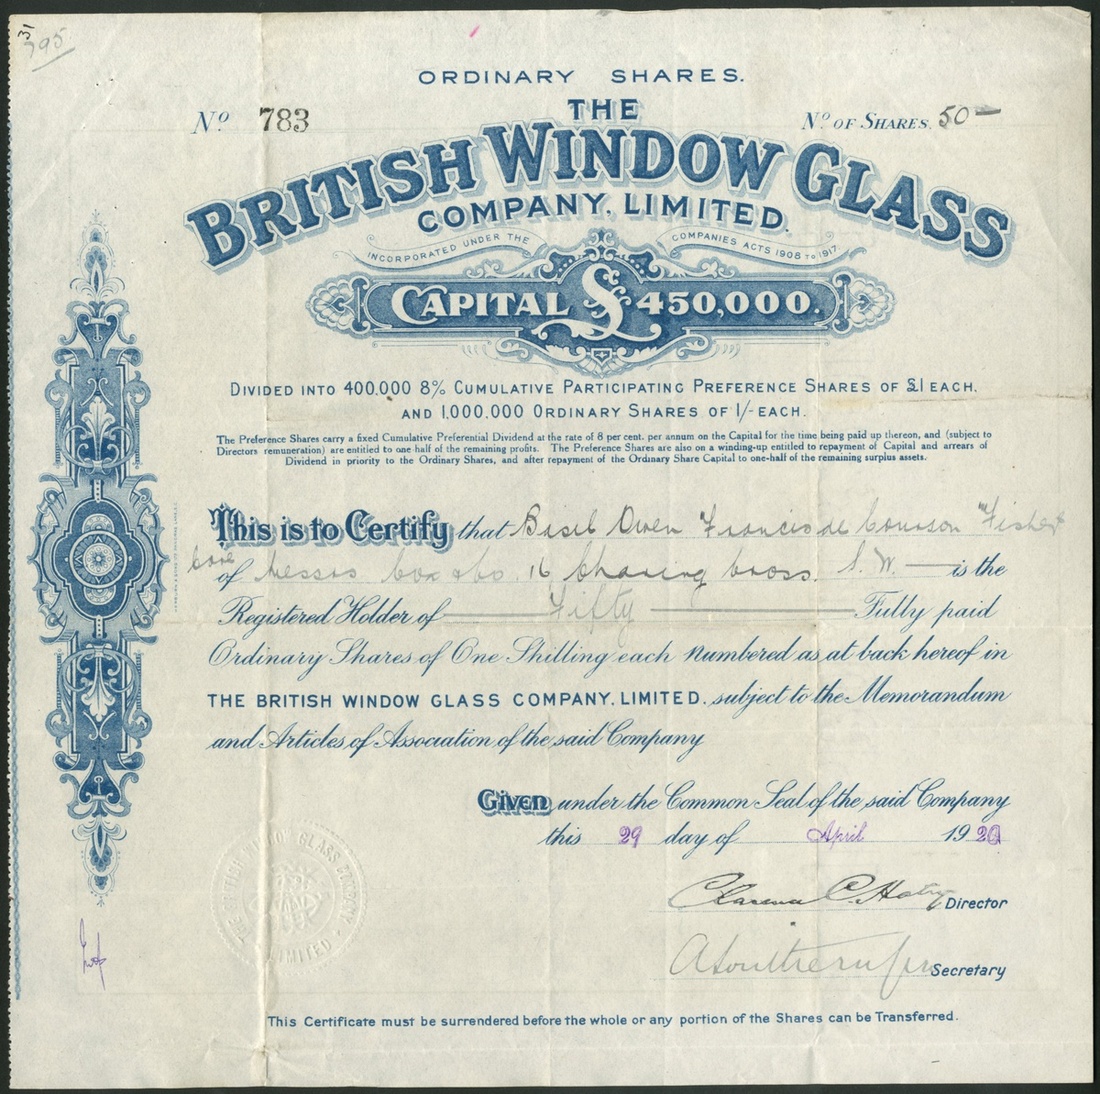 31
795
ORDINARY SHARES.
No 783
No OF SHARES. 50
THE
BRITISH WINDOW GLASS
COMPANY, LIMITED.
INCORPORATED UNDER THE COMPANIES ACTS 1908 TO 1917.
CAPITAL £450,000.
DIVIDED INTO 400,000 8% CUMULATIVE PARTICIPATING PREFERENCE SHARES OF £1 EACH.
AND 1,000,000 ORDINARY SHARES OF 1/- EACH.
The Preference Shares carry a fixed Cumulative Preferential Dividend at the rate of 8 per cent. per annum on the Capital for the time being paid up thereon, and (subject to
Directors remuneration) are entitled to one half of the remaining profits. The Preference Shares are also on a winding-up entitled to repayment of Capital and arrears of
Dividend in priority to the Ordinary Shares, and after repayment of the Ordinary Share Capital to one-half of the remaining surplus assets.
This is to Certify that Basil Owen Francis de Courson "Fisher
of Messrs Cox & Co. 16 Charing Cross. S. W. is the
Registered Holder of Fifty Fully paid
Ordinary Shares of One Shilling each numbered as at back hereof in
THE BRITISH WINDOW GLASS COMPANY, LIMITED. subject to the Memorandum
and Articles of Association of the said Company
Given under the Common Seal of the said Company
this 29 day of April 1920
Clarence C. Hatry Director
Secretary
THE BRITISH WINDOW GLASS COMPANY LIMITED
This Certificate must be surrendered before the whole or any portion of the Shares can be Transferred.